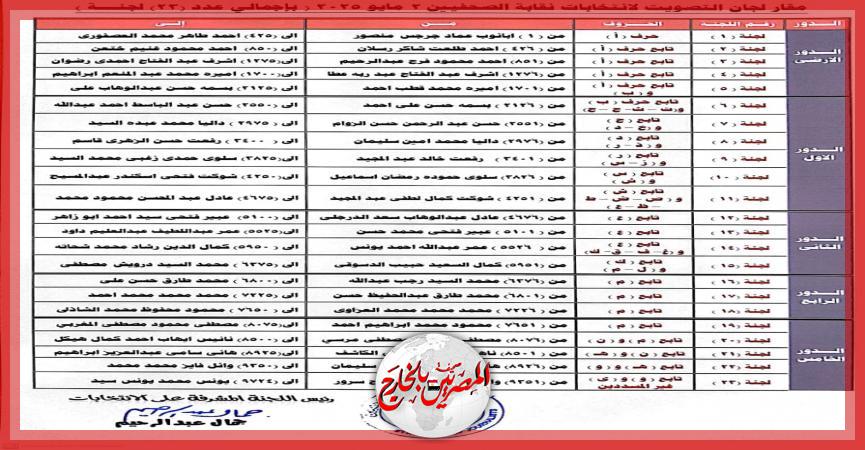 مقار لجان التصويت لانتخابات نقابة الصحفيين ٢ مايو ٢٠٢٥ ( بإجمالي عدد (٢٣) لجنة )
الدور رقم اللجنة الحروف من إلى
الدور الارضى
لجنة (١) حرف (أ) من (١) ابانوب عماد جرجس منصور الى (٤٢٥) احمد طاهر محمد العصفورى
لجنة (٢) تابع حرف (أ) من (٤٢٦) احمد طلعت شاكر رسلان الى (٨٥٠) احمد محمود غنيم
لجنة (٣) تابع حرف (أ) من (٨٥١) احمد محمود فرج عبدالرحيم الى (١٢٧٥) اشرف عبد الفتاح احمدى رضوان
لجنة (٤) تابع حرف (أ) من (١٢٧٦) اشرف عبد الفتاح عبد ربه عطا الى (١٧٠٠) اميره محمد عبد المنعم ابراهيم
لجنة (٥) تابع حرف (أ) و (ب) من (١٧٠١) اميره محمد قطب احمد الى (٢١٢٥) بسمه حسن عبدالوهاب على
الدور الاول
لجنة (٦) تابع حرف (ب) من (٢١٢٦) بسمه حسن على احمد الى (٢٥٥٠) حسن عبد الباسط احمد عبدالله
لجنة (٧) تابع (ح) و (خ - د) من (٢٥٥١) حسن عبد الرحمن حسن الزوام الى (٢٩٧٥) داليا محمد عبده السيد
لجنة (٨) تابع (د) و (ذ - ر) من (٢٩٧٦) داليا محمد امين سليمان الى (٣٤٠٠) رفعت حسن الزهرى قاسم
لجنة (٩) تابع (ر) و (ز - س) من (٣٤٠١) رفعت خالد عبد المجيد الى (٣٨٢٥) سلوى حمدى زغبى محمد السيد
لجنة (١٠) تابع (س) و (ش) من (٣٨٢٦) سلوى حموده رمضان اسماعيل الى (٤٢٥٠) شوكت فتحى اسكندر عبدالمسيح
لجنة (١١) تابع (ش) و (ص - ض - ط - ظ - ع) من (٤٢٥١) شوكت كمال لطفى عبد المجيد الى (٤٦٧٥) عادل عبد المحسن محمود محمد
الدور الثانى
لجنة (١٢) تابع (ع) من (٤٦٧٦) عادل عبدالوهاب سعد الدرجلى الى (٥١٠٠) عبير فتحى سيد احمد ابو زاهر
لجنة (١٣) تابع (ع) من (٥١٠١) عبير فتحى محمد حسن الى (٥٥٢٥) عمر عبداللطيف عبدالعليم داود
لجنة (١٤) تابع (ع) و (غ - ف - ق - ك) من (٥٥٢٦) عمر عبدالله احمد يونس الى (٥٩٥٠) كمال الدين رشاد محمد شحاته
لجنة (١٥) تابع (ك) و (ل - م) من (٥٩٥١) كمال السعيد حبيب الدسوقى الى (٦٣٧٥) محمد السيد درويش مصطفى
الدور الرابع
لجنة (١٦) تابع (م) من (٦٣٧٦) محمد السيد رجب عبدالله الى (٦٨٠٠) محمد طارق حسن على
لجنة (١٧) تابع (م) من (٦٨٠١) محمد طارق عبدالحفيظ حسن الى (٧٢٢٥) محمد محمد محمد احمد
لجنة (١٨) تابع (م) من (٧٢٢٦) محمد محمد محمد العزاوى الى (٧٦٥٠) محمود محفوظ محمد الشاذلى
الدور الخامس
لجنة (١٩) تابع (م) من (٧٦٥١) محمود محمد ابراهيم احمد الى (٨٠٧٥) مصطفى محمود مصطفى المغربي
لجنة (٢٠) تابع (م) و (ن) من (٨٠٧٦) مصطفى مرسي الى (٨٥٠٠) نانيس ايهاب احمد كمال هيكل
لجنة (٢١) تابع (ن) و (هـ) من (٨٥٠١) الكاشف الى (٨٩٢٥) هانى سامى عبدالعزيز ابراهيم
لجنة (٢٢) تابع (هـ) و (و) سليمان الى (٩٣٥٠) وائل فايز محمد محمد
لجنة (٢٣) تابع (و) و (ى) غير المسددين من (٩٣٥١) سرور الى (٩٧٢٤) يونس محمد يونس سيد
المصريين بالخارج
رئيس اللجنة المشرفة على الانتخابات
جمال عبدالرحيم